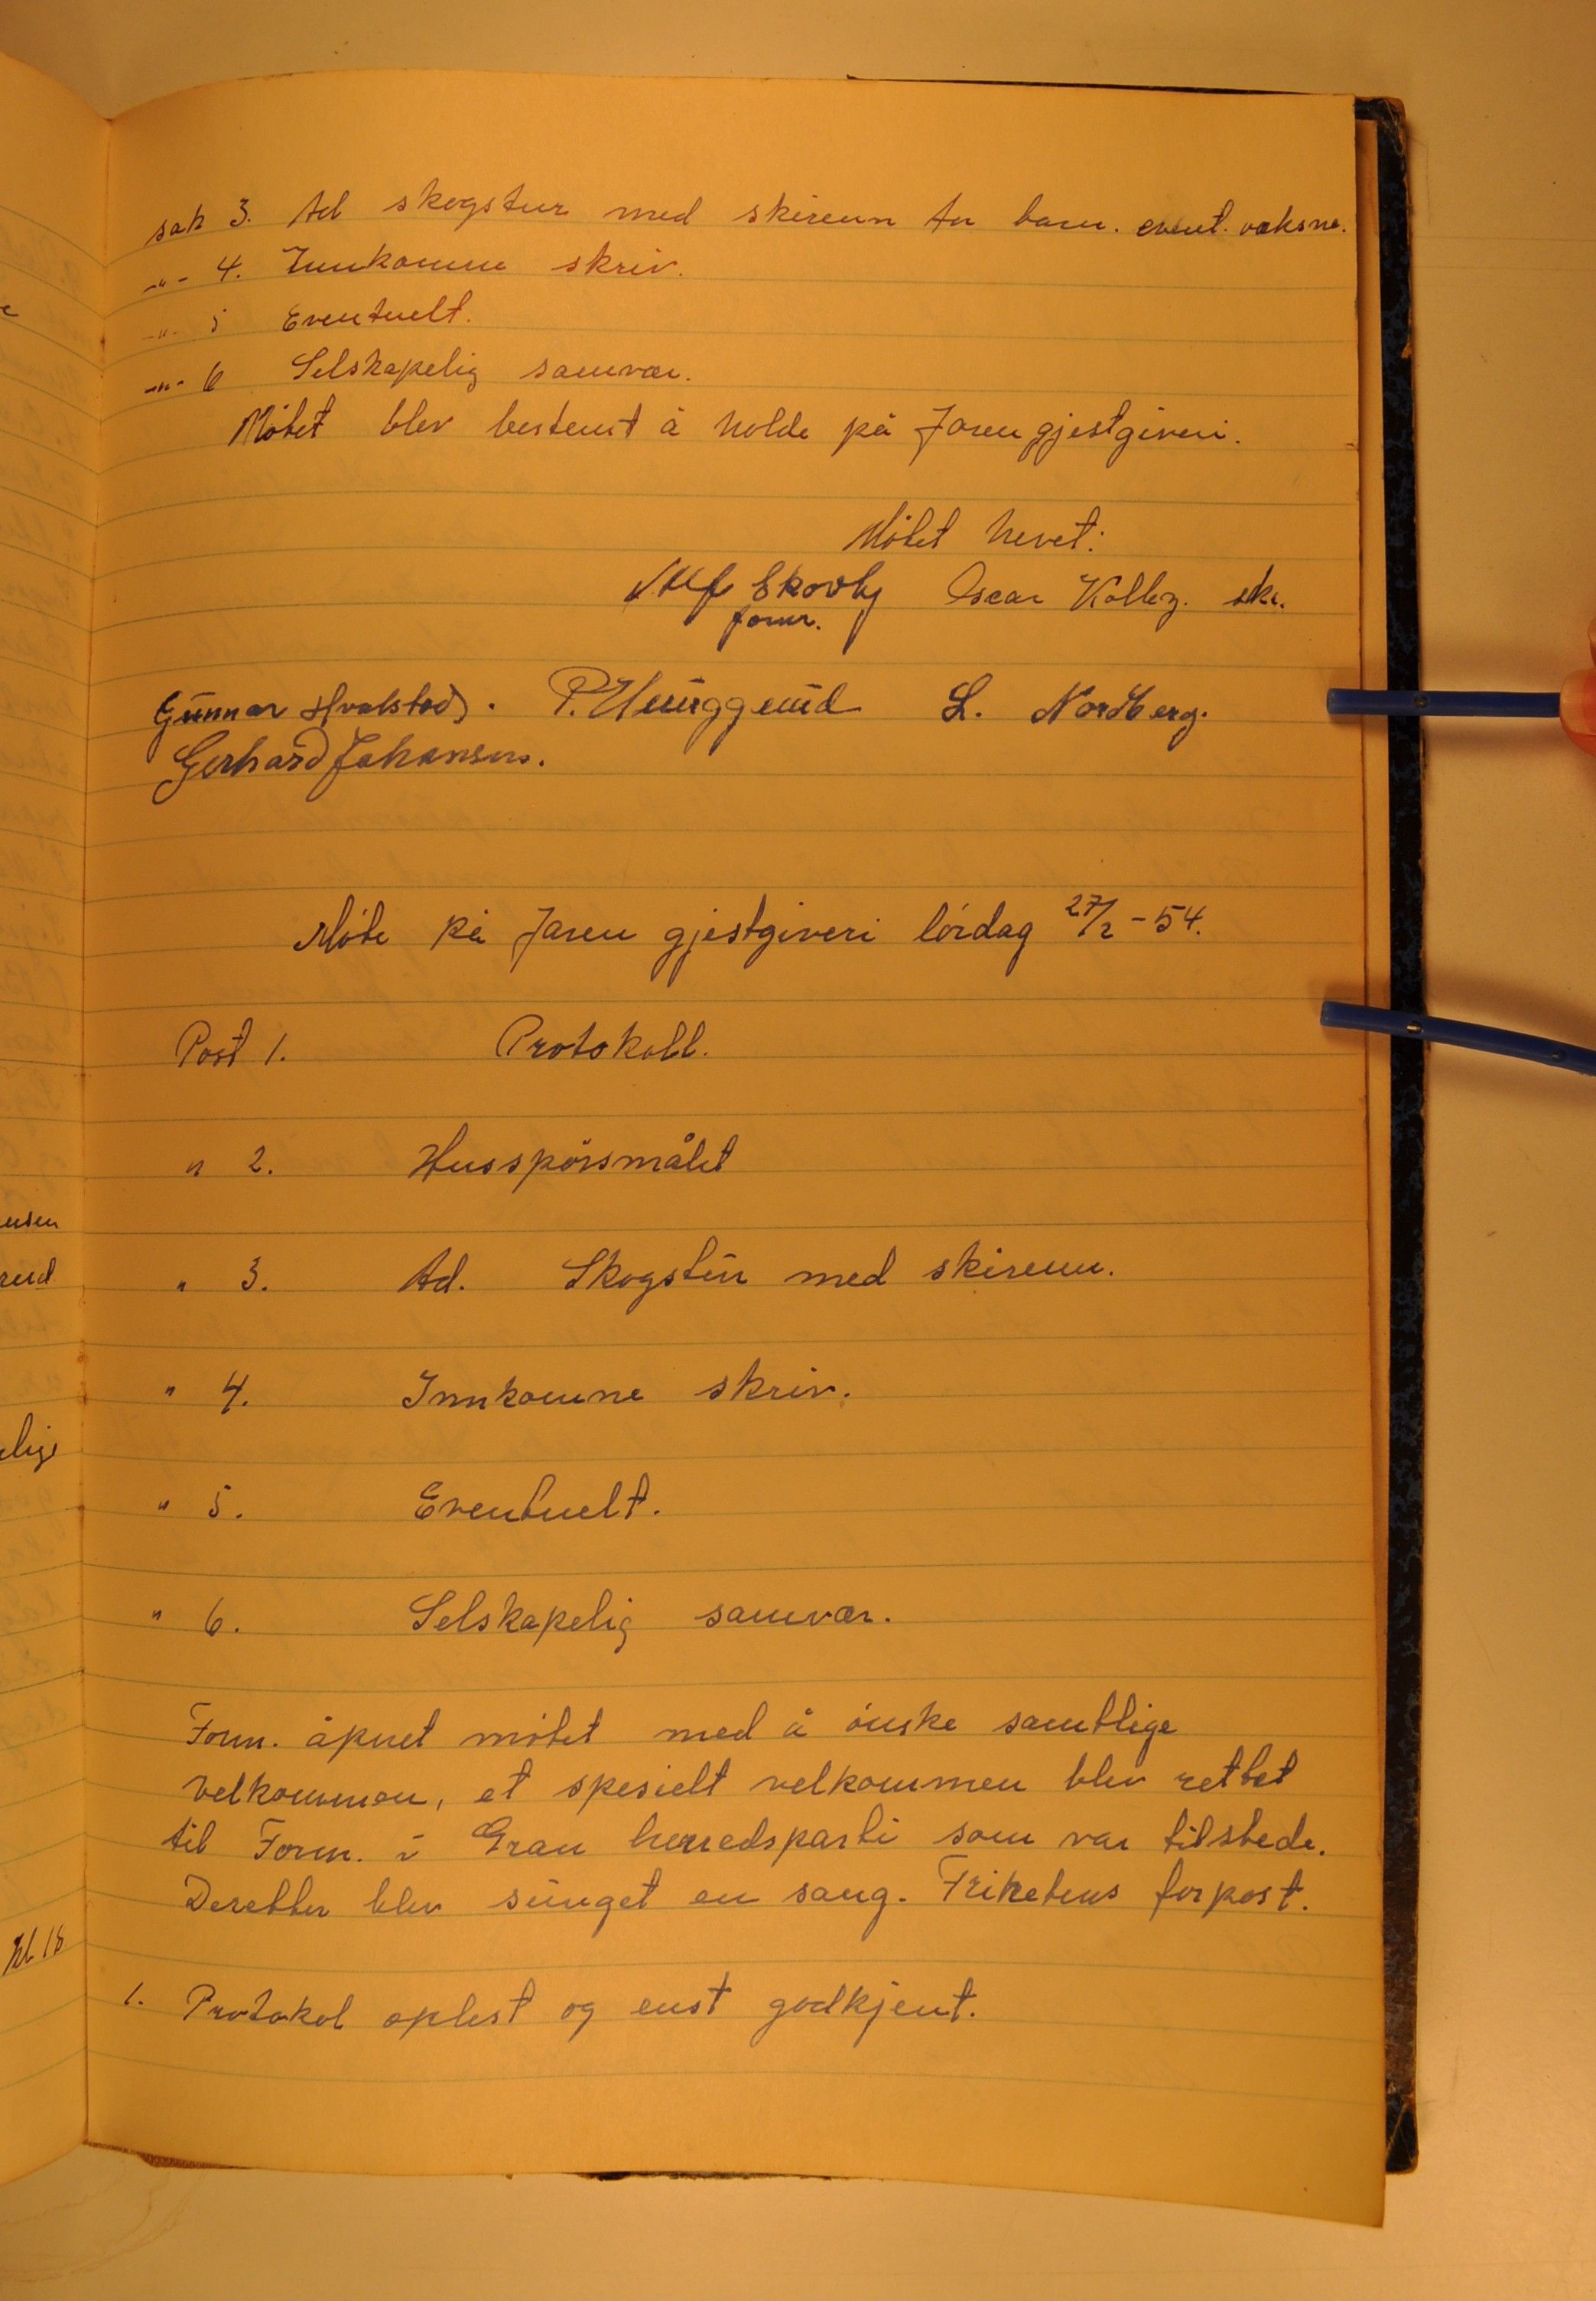 sak 3. Ad skogstur med skirenn for barn. event. voksne.
-"- 4. Innkomne skriv.
-"- 5 Eventuelt.
-"- 6 Selskapelig samvær.
Møtet blev bestemt å holde på Jaren gjestgiveri.
Møtet hevet:
Alf Skovly Oscar Kolby. skr.
form.
Gunnar Hvalstad. P. L. Nordberg.
Gerhard Johansen.
Møte på Jaren gjestgiveri lørdag 27/2-54.
Post 1. Protokoll.
" 2. Husspørsmålet
" 3. Ad. Skogstur med skirenn.
" 4. Innkomne skriv.
" 5. Eventuelt.
" 6. Selskapelig samvær.
Form. åpnet møtet med å ønske samtlige
velkommen, et spesielt velkommen blev rettet
til Form. i Gran herredsparti som var tilstede.
Deretter blev sunget en sang. Frihetens forpost.
1. Protokol oplest og enst godkjent.